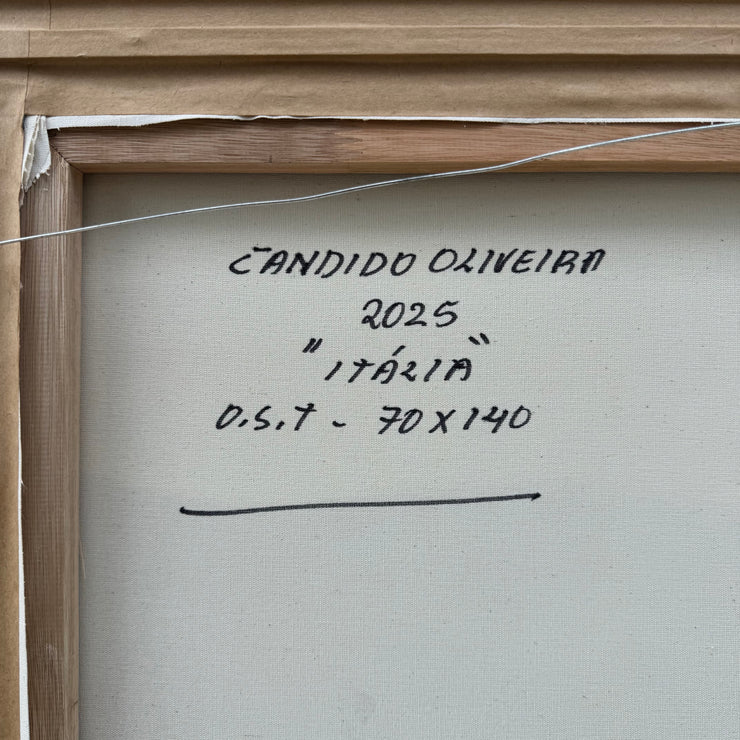 CANDIDO OLIVEIRA
2025
"ITÁLIA"
O.S.T - 70X140